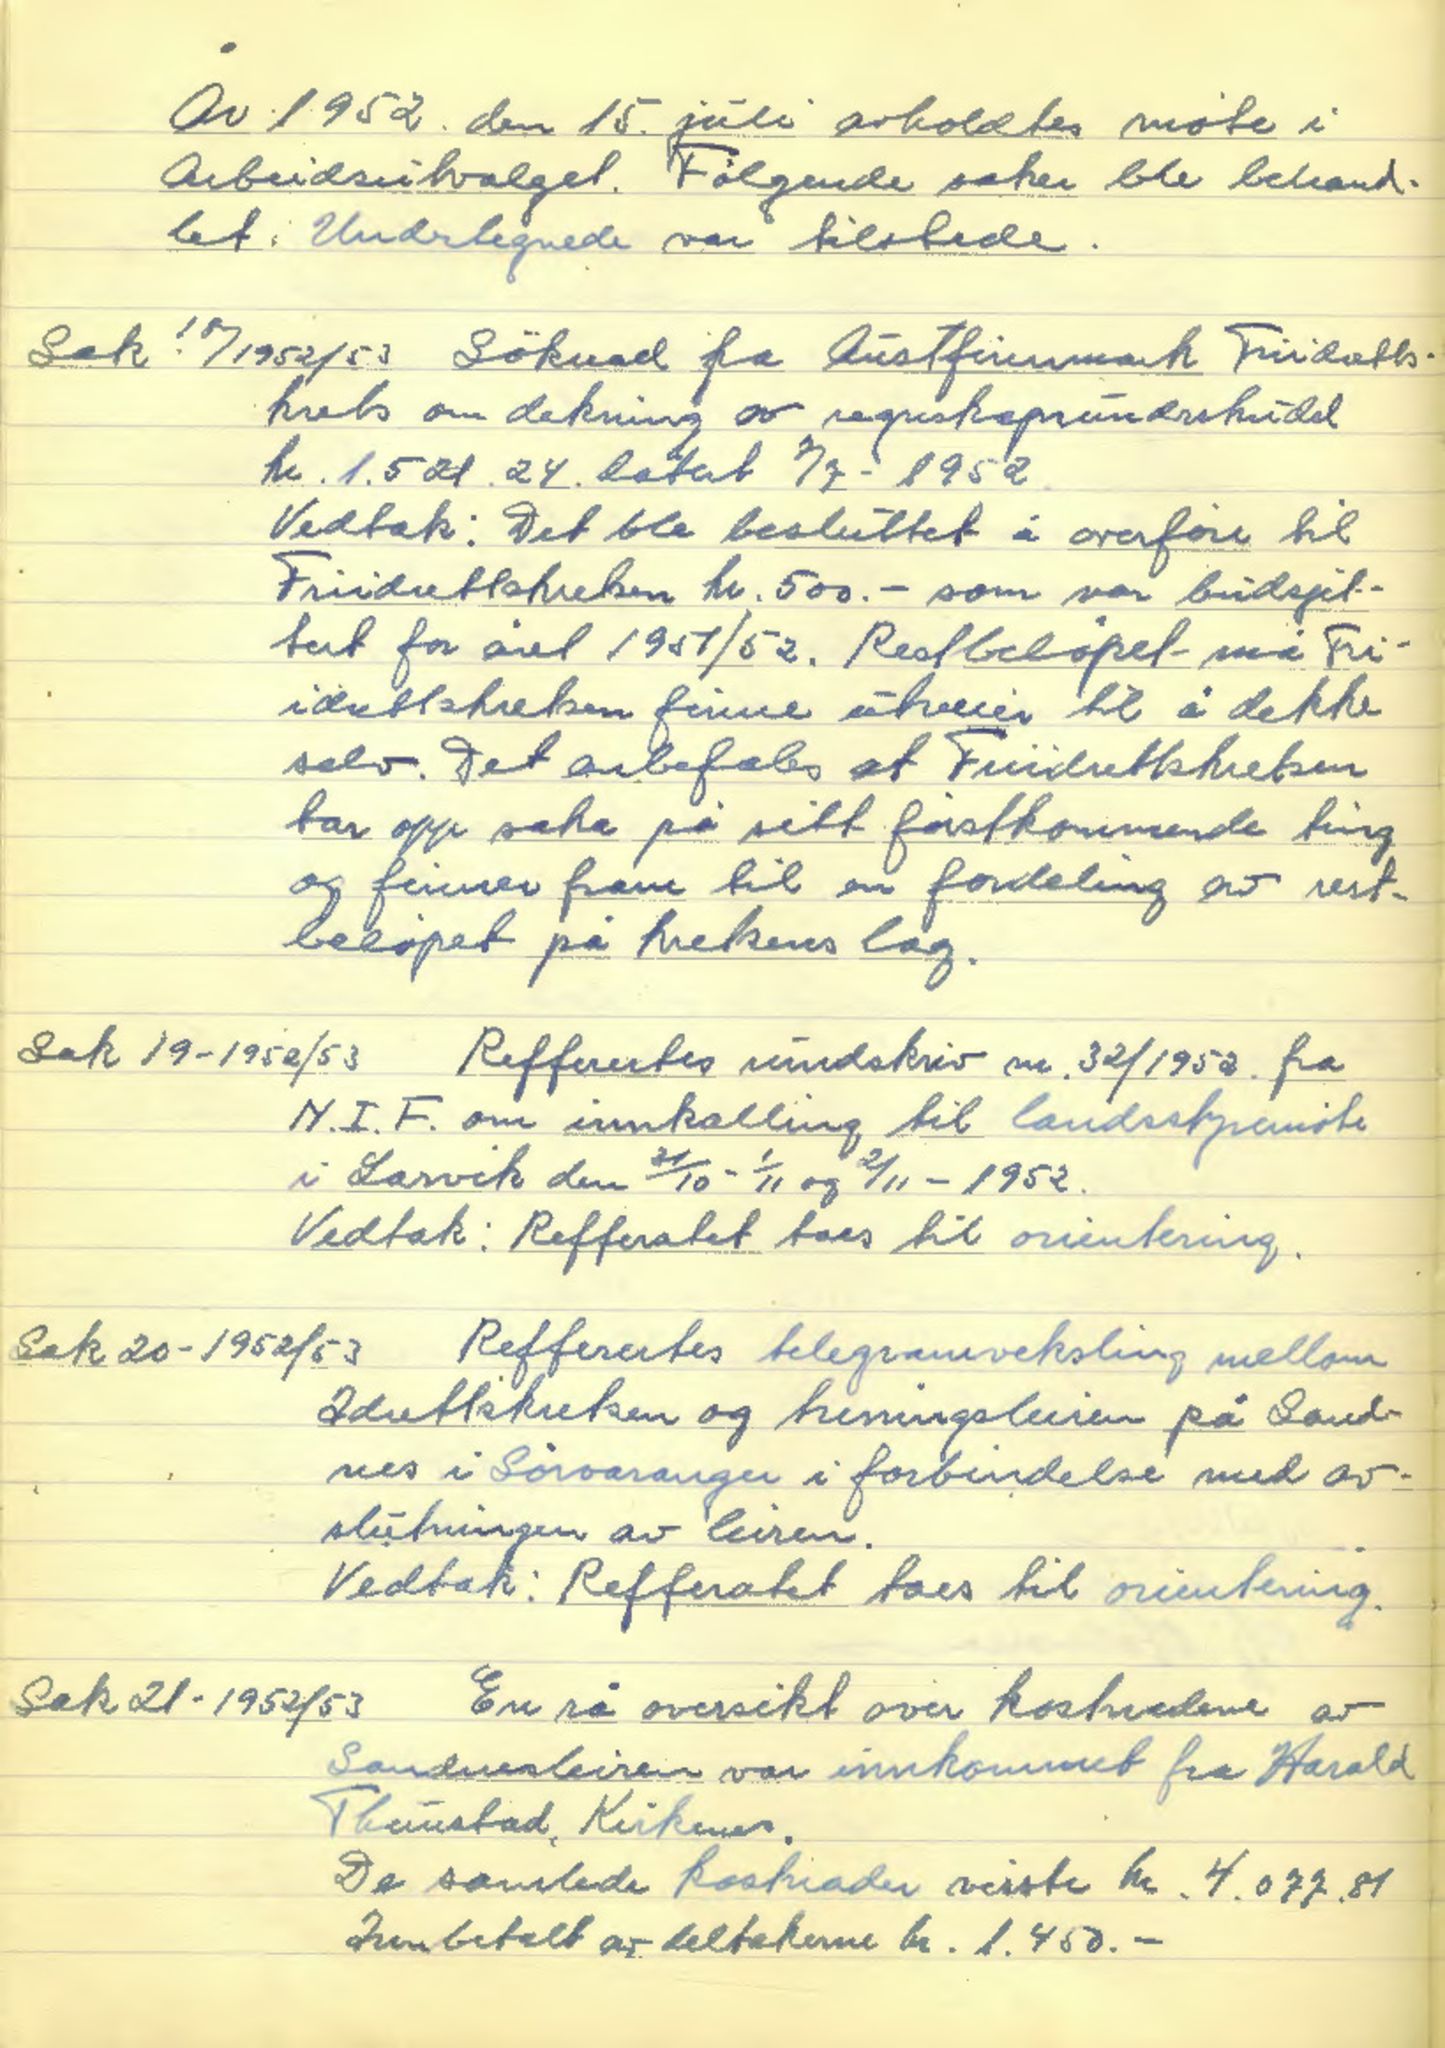 År 1952. den 15. juli avholdtes möte i
Arbeidsutvalget. Fölgende saker ble behand-
let. Undertegnede var tilstede.
Sak 18/1952/53 Söknad fra Austfinnmark Friidretts-
krets om dekning av regnskapsundrskudd
kr. 1.521.24. datert 7/7- 1952
Vedtak: Det ble besluttet å overföre til
Friidrettskretsen kr. 500.- som var budsjet-
tert for året 1951/52. Restbelöpet må Fri-
idrettskretsen finne utveier til å dekke
selv. Det anbefales at Friidrettskretsen
tar opp saka på sitt förstkommende ting
og finner fram til en fordeling av rest-
belöpet på kretsens lag.
Sak 19-1952/53 Refferertes rundskriv nr. 32/1952. fra
N.I.F. om innkalling til landsstyremöte
i Larvik den 31/10- 1/11 og 2/11 - 1952.
Vedtak: Refferatet taes til orientering.
Sak 20-1952/53 Refferertes telegramveksling mellom
Idrettskretsen og treningsleiren på Sand-
nes i Sörvaranger i forbindelse med av-
slutningen av leiren.
Vedtak: Refferatet taes til orientering.
Sak 21-1952/53 En rå oversikt over kostnadene av
Sandnesleiren var innkommet fra Harald
Thunstad, Kirkenes.
De samlede kostnader viste kr. 4.077.81
Innbetalt av deltakerne kr. 1.450.-